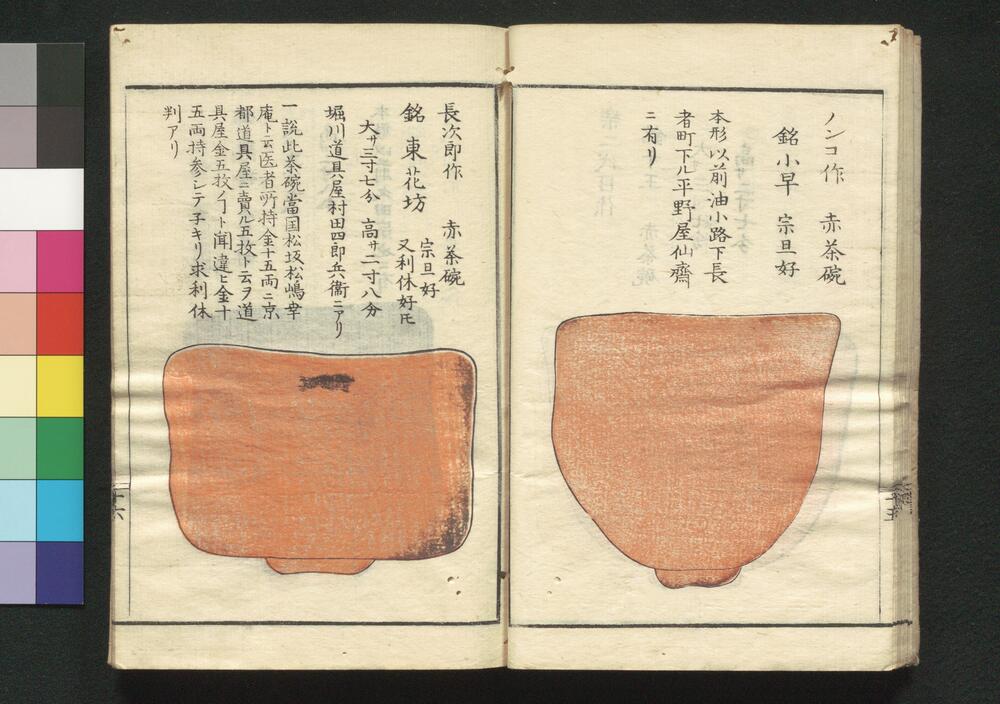 ノンコ作　赤茶碗
銘小早　宗旦好
本形以前油小路下長
者町下ル平野屋仙齋
ニ有リ
長次郎作　赤茶碗
銘東花坊　宗旦好
又利休好トモ
大サ三寸七分　高サ二寸八分
堀川道具屋村田四郎兵衞ニアリ
一説此茶碗當国松坂松嶋幸
庵ト云医者所持金十五両ニ京
都道具屋ニ賣ル五枚ト云ヲ道
具屋金五枚ノコト聞違ヒ金十
五両持参シテ子キリ求利休
判アリ